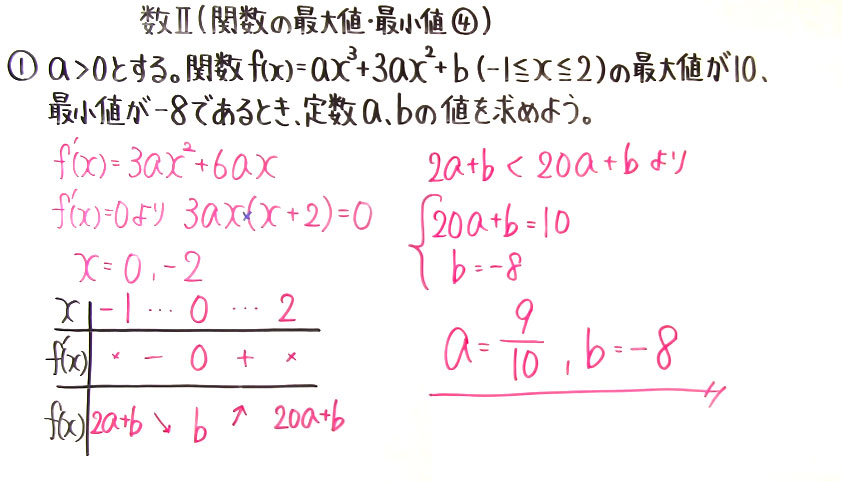 数Ⅱ(関数の最大値・最小値④)
① a>0とする。関数f(x)=ax³+3ax²+b(-1≦x≦2)の最大値が10、
最小値が-8であるとき、定数a、bの値を求めよう。
f'(x)=3ax²+6ax
f'(x)=0より 3ax×(x+2)=0
x=0,-2
x -1 … 0 … 2
f'(x) × - 0 + ×
f(x) 2a+b ↘ b ↗ 20a+b
2a+b < 20a+bより
20a+b=10
b=-8
a=9/10, b=-8